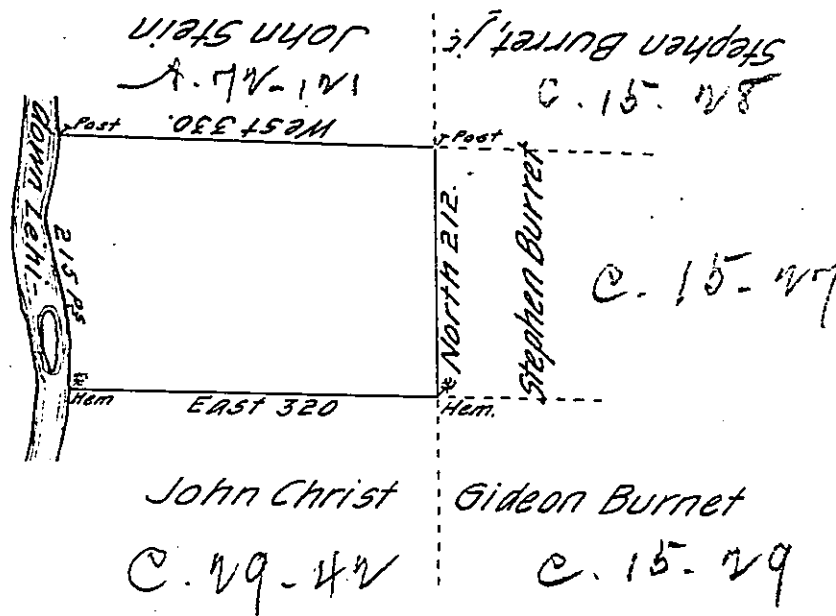 John Stein
A-72-121
West 330.
Stephen Burret, jr
C. 15. 28
Post
Post
down Lehi-
215 Ps
North 212.
Stephen Burret
C. 15- 27
Hem
East 320
Hem.
John Christ
Gideon Burnet
C. 29-42
C. 15- 29